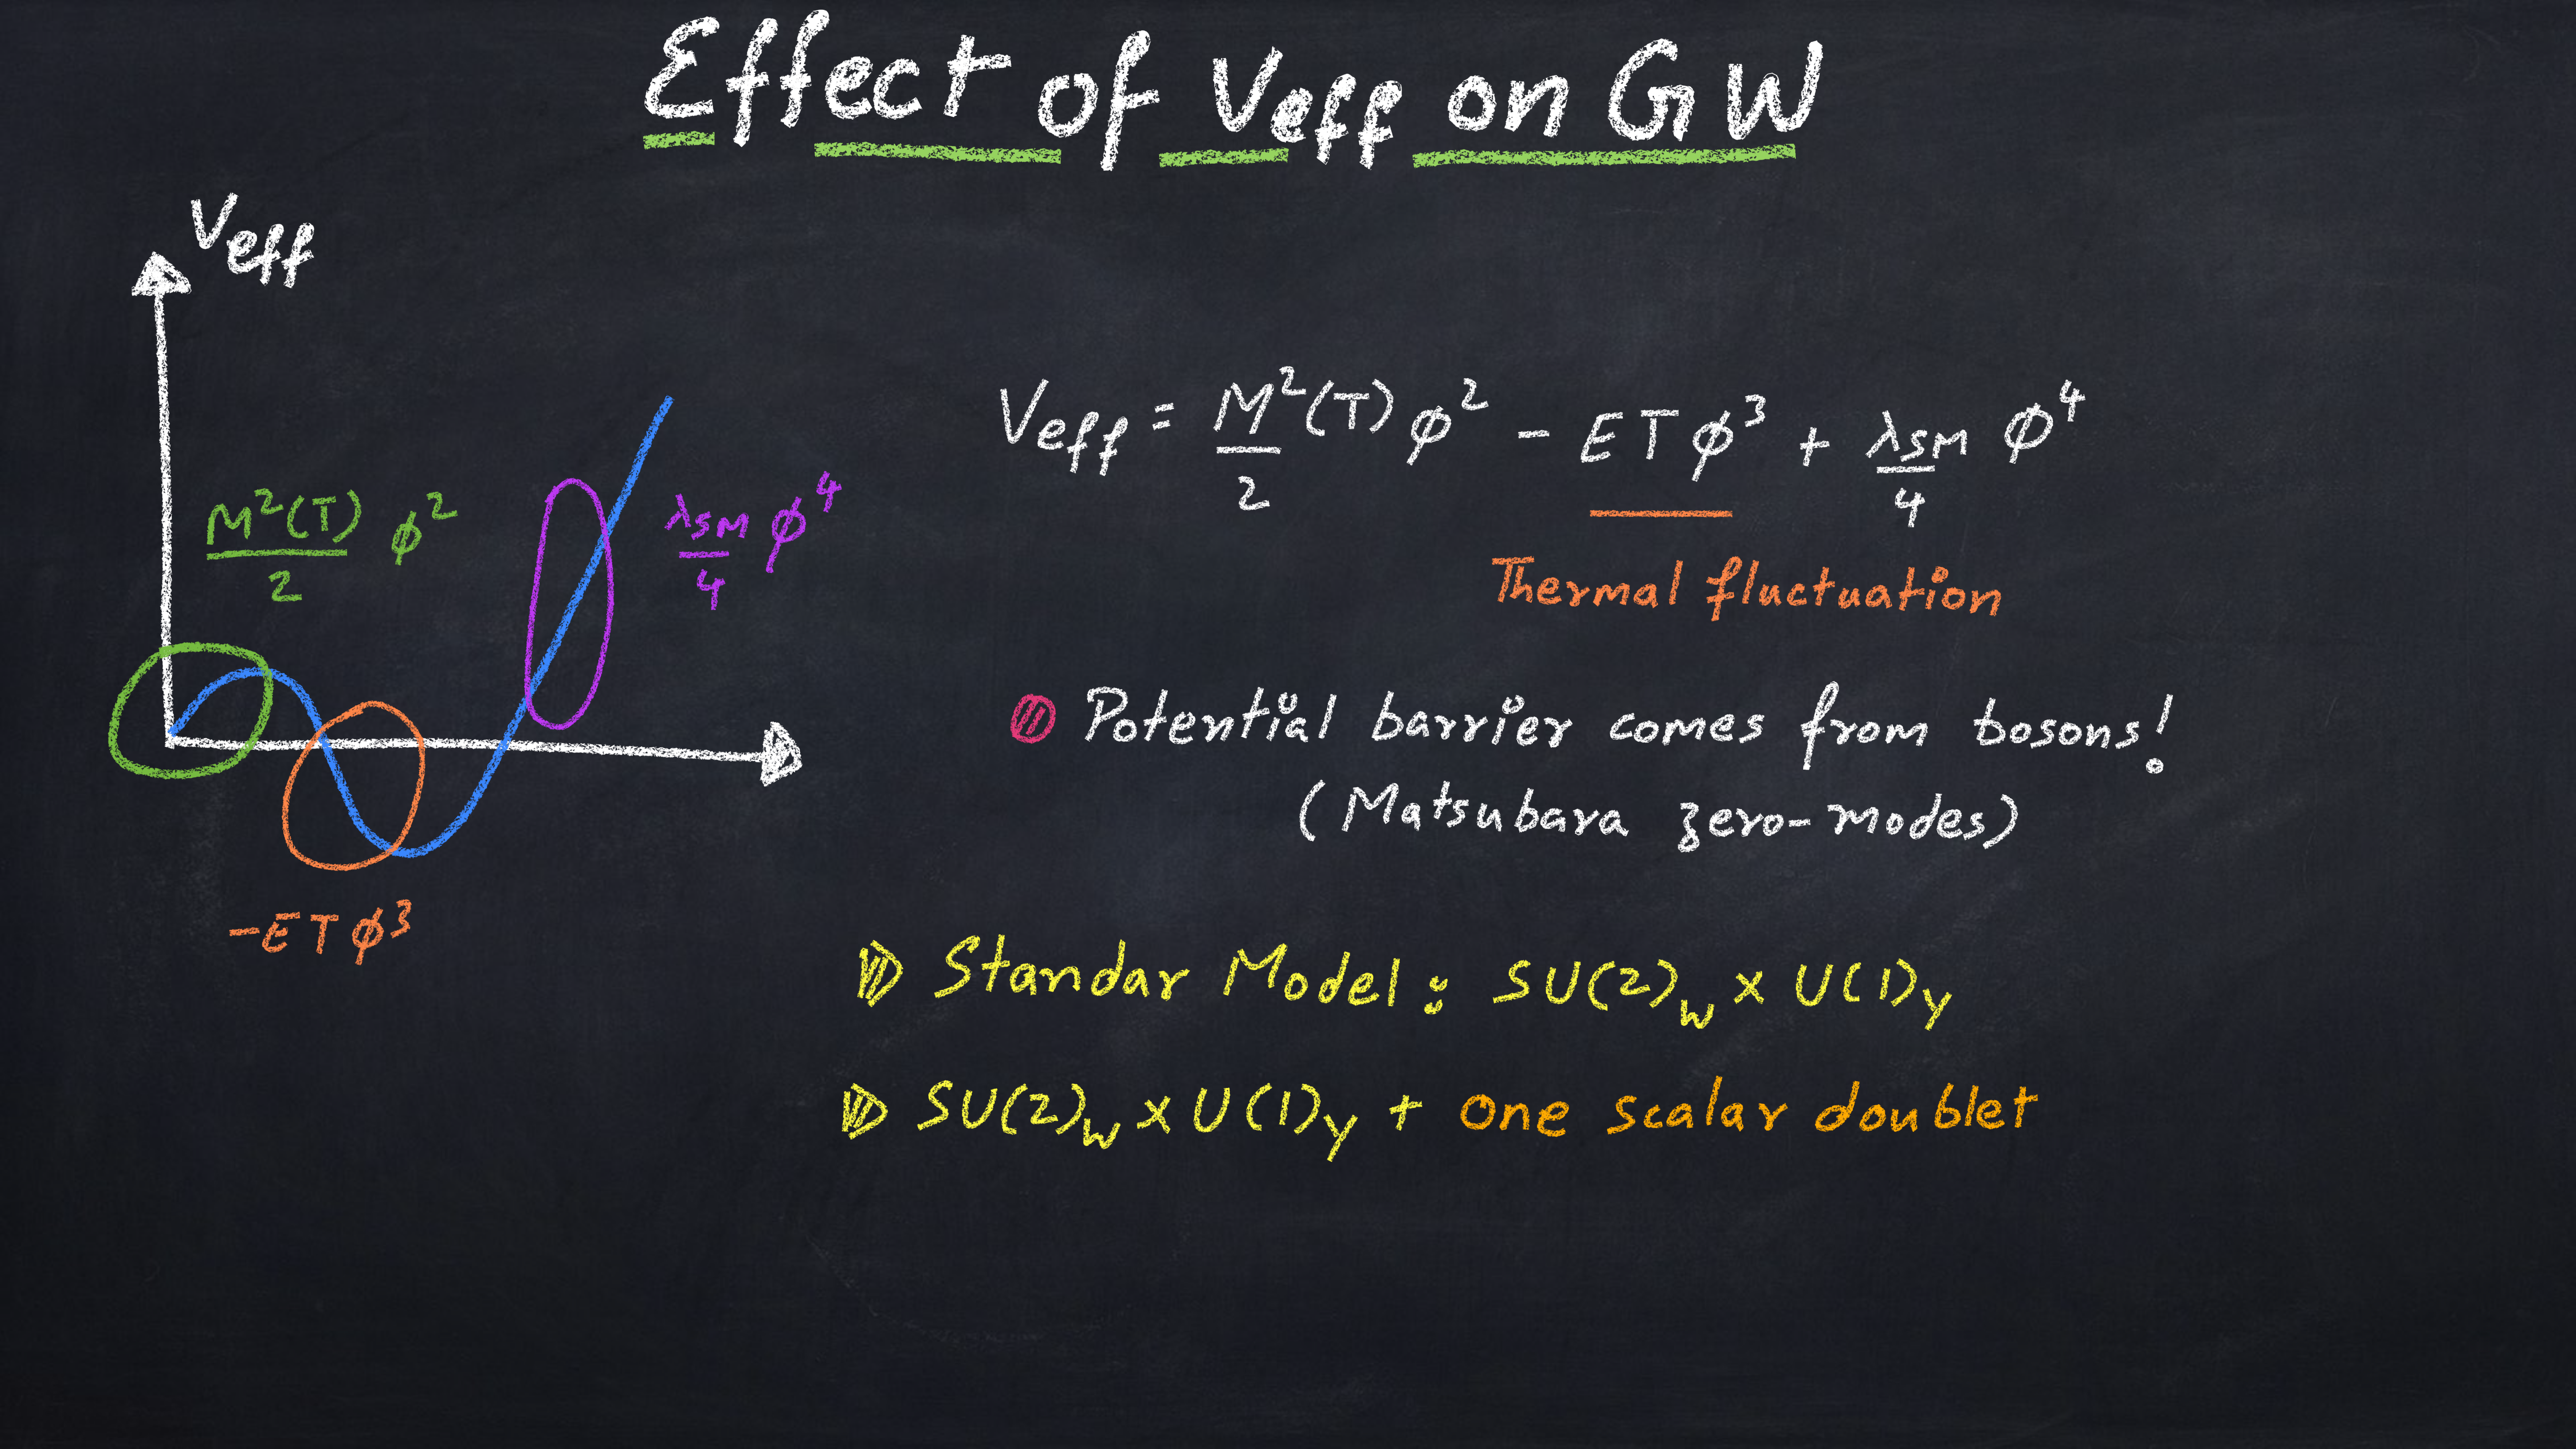 Effect of Veff on GW
Veff
M²(T)/2 φ²
λSM/4 φ⁴
-ETφ³
Veff = M²(T)/2 φ² - ETφ³ + λSM/4 φ⁴
Thermal fluctuation
Potential barrier comes from bosons!
(Matsubara zero-modes)
Standar Model: SU(2)w x U(1)Y
SU(2)w x U(1)Y + one scalar doublet